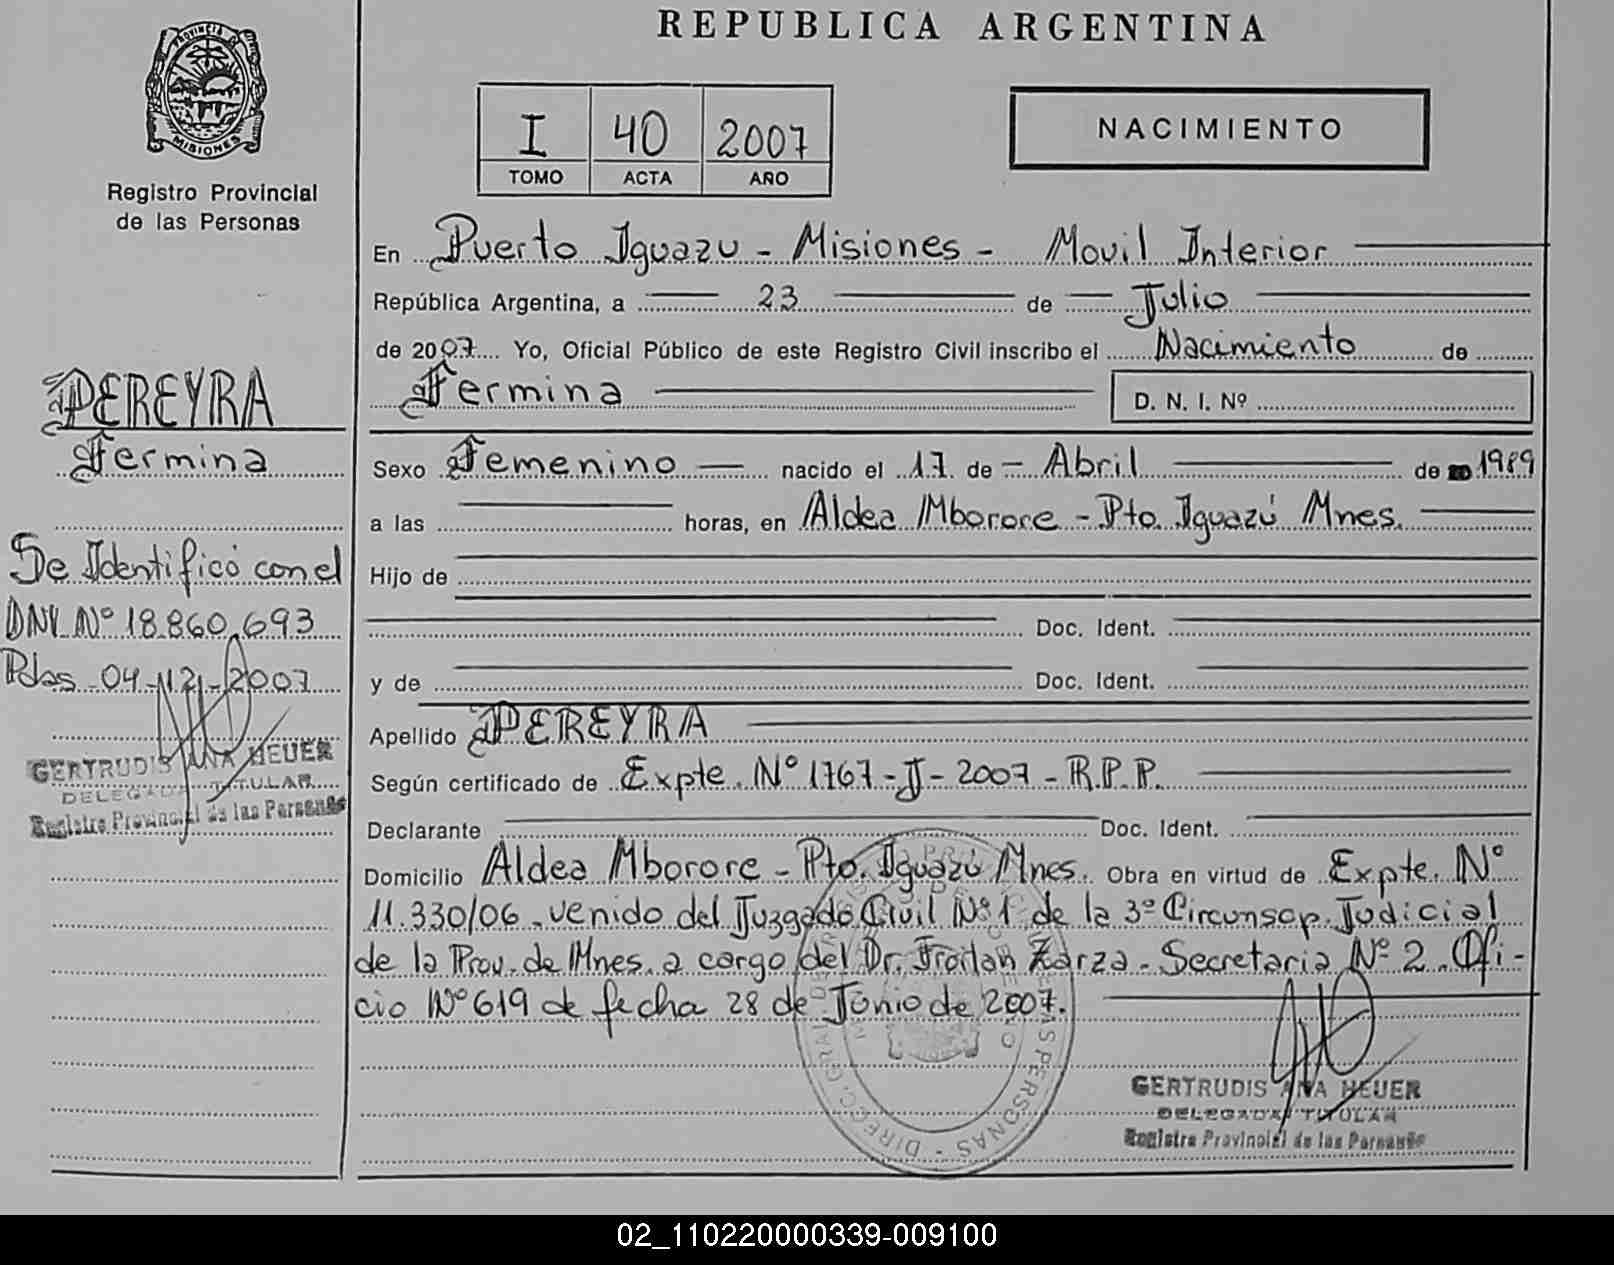 REPUBLICA ARGENTINA
PROVINCIA DE
MISIONES
Registro Provincial
de las Personas
I 40 2007
TOMO ACTA AÑO
NACIMIENTO
En Puerto Iguazu - Misiones - Movil Interior
República Argentina, a 23 de Julio
de 2007 Yo, Oficial Público de este Registro Civil inscribo el Nacimiento de
Fermina D. N. I. Nº
Sexo Femenino nacido el 17 de Abril de 1989
a las horas, en Aldea Mborore - Pto. Iguazú Mnes.
Hijo de
Doc. Ident.
y de Doc. Ident.
Apellido PEREYRA
Según certificado de Expte. Nº 1767-J-2007-R.P.P.
Declarante Doc. Ident.
Domicilio Aldea Mborore - Pto. Iguazú Mnes. Obra en virtud de Expte. Nº
11.330/06. venido del Juzgado Civil Nº 1 de la 3º Circunscp. Judicial
de la Prov. de Mnes. a cargo del Dr. Froilan Zarza. Secretaria Nº 2. Ofi-
cio Nº 619 de fecha 28 de Junio de 2007.
GERTRUDIS ANA HEUER
DELEGADA TITULAR
Registro Provincial de las Personas
PEREYRA
Fermina
Se Identificó con el
DNI Nº 18.860.693
Pdas 04-12-2007
GERTRUDIS ANA HEUER
DELEGADA TITULAR
Registro Provincial de las Personas
02_110220000339-009100